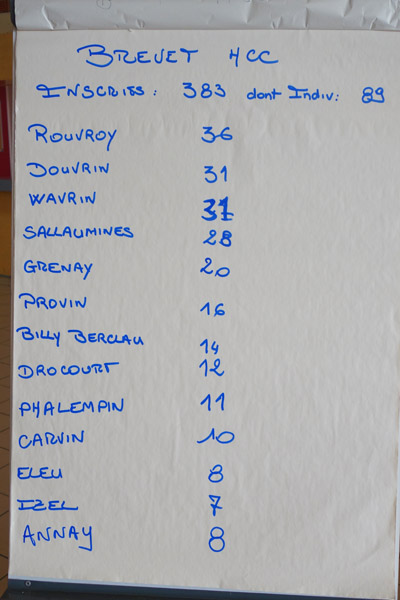 BREVET HCC
INSCRITS : 383 dont Indiv: 89
ROUVROY 36
DOUVRIN 31
WAVRIN 31
SALLAUMINES 28
GRENAY 20
PROVIN 16
BILLY BERCLAU 14
DROCOURT 12
PHALEMPIN 11
CARVIN 10
ELEU 8
IZEL 7
ANNAY 8